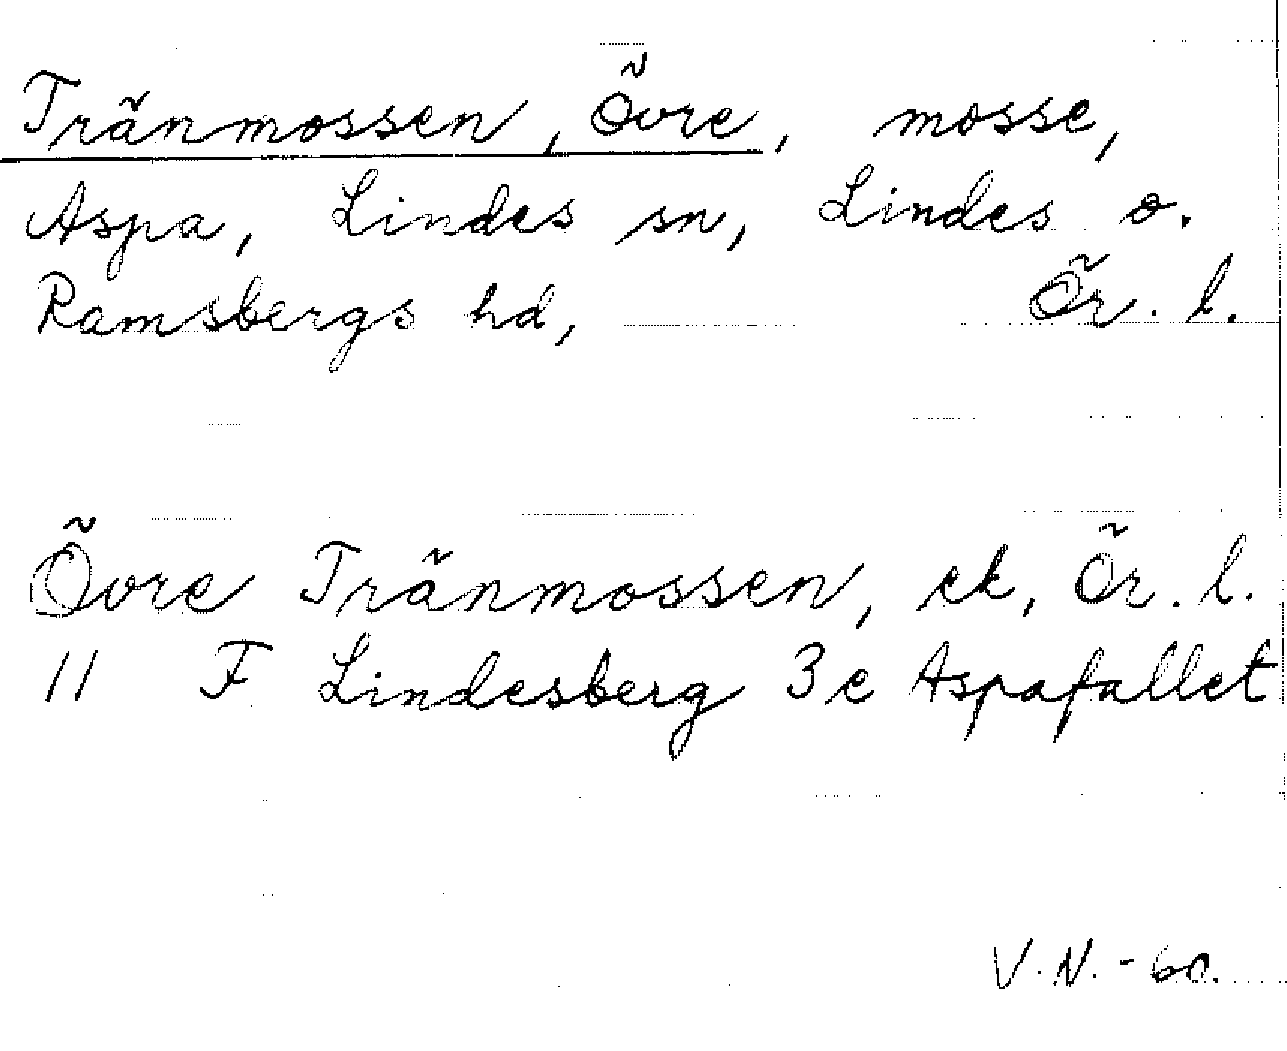 Tränmossen, Övre, mosse,
Aspa, Lindes sn, Lindes o.
Ramsbergs hd, Ör. l.
Övre Tränmossen, ek, Ör. l.
11 F Lindesberg 3 e Aspafallet
V.N. -60.